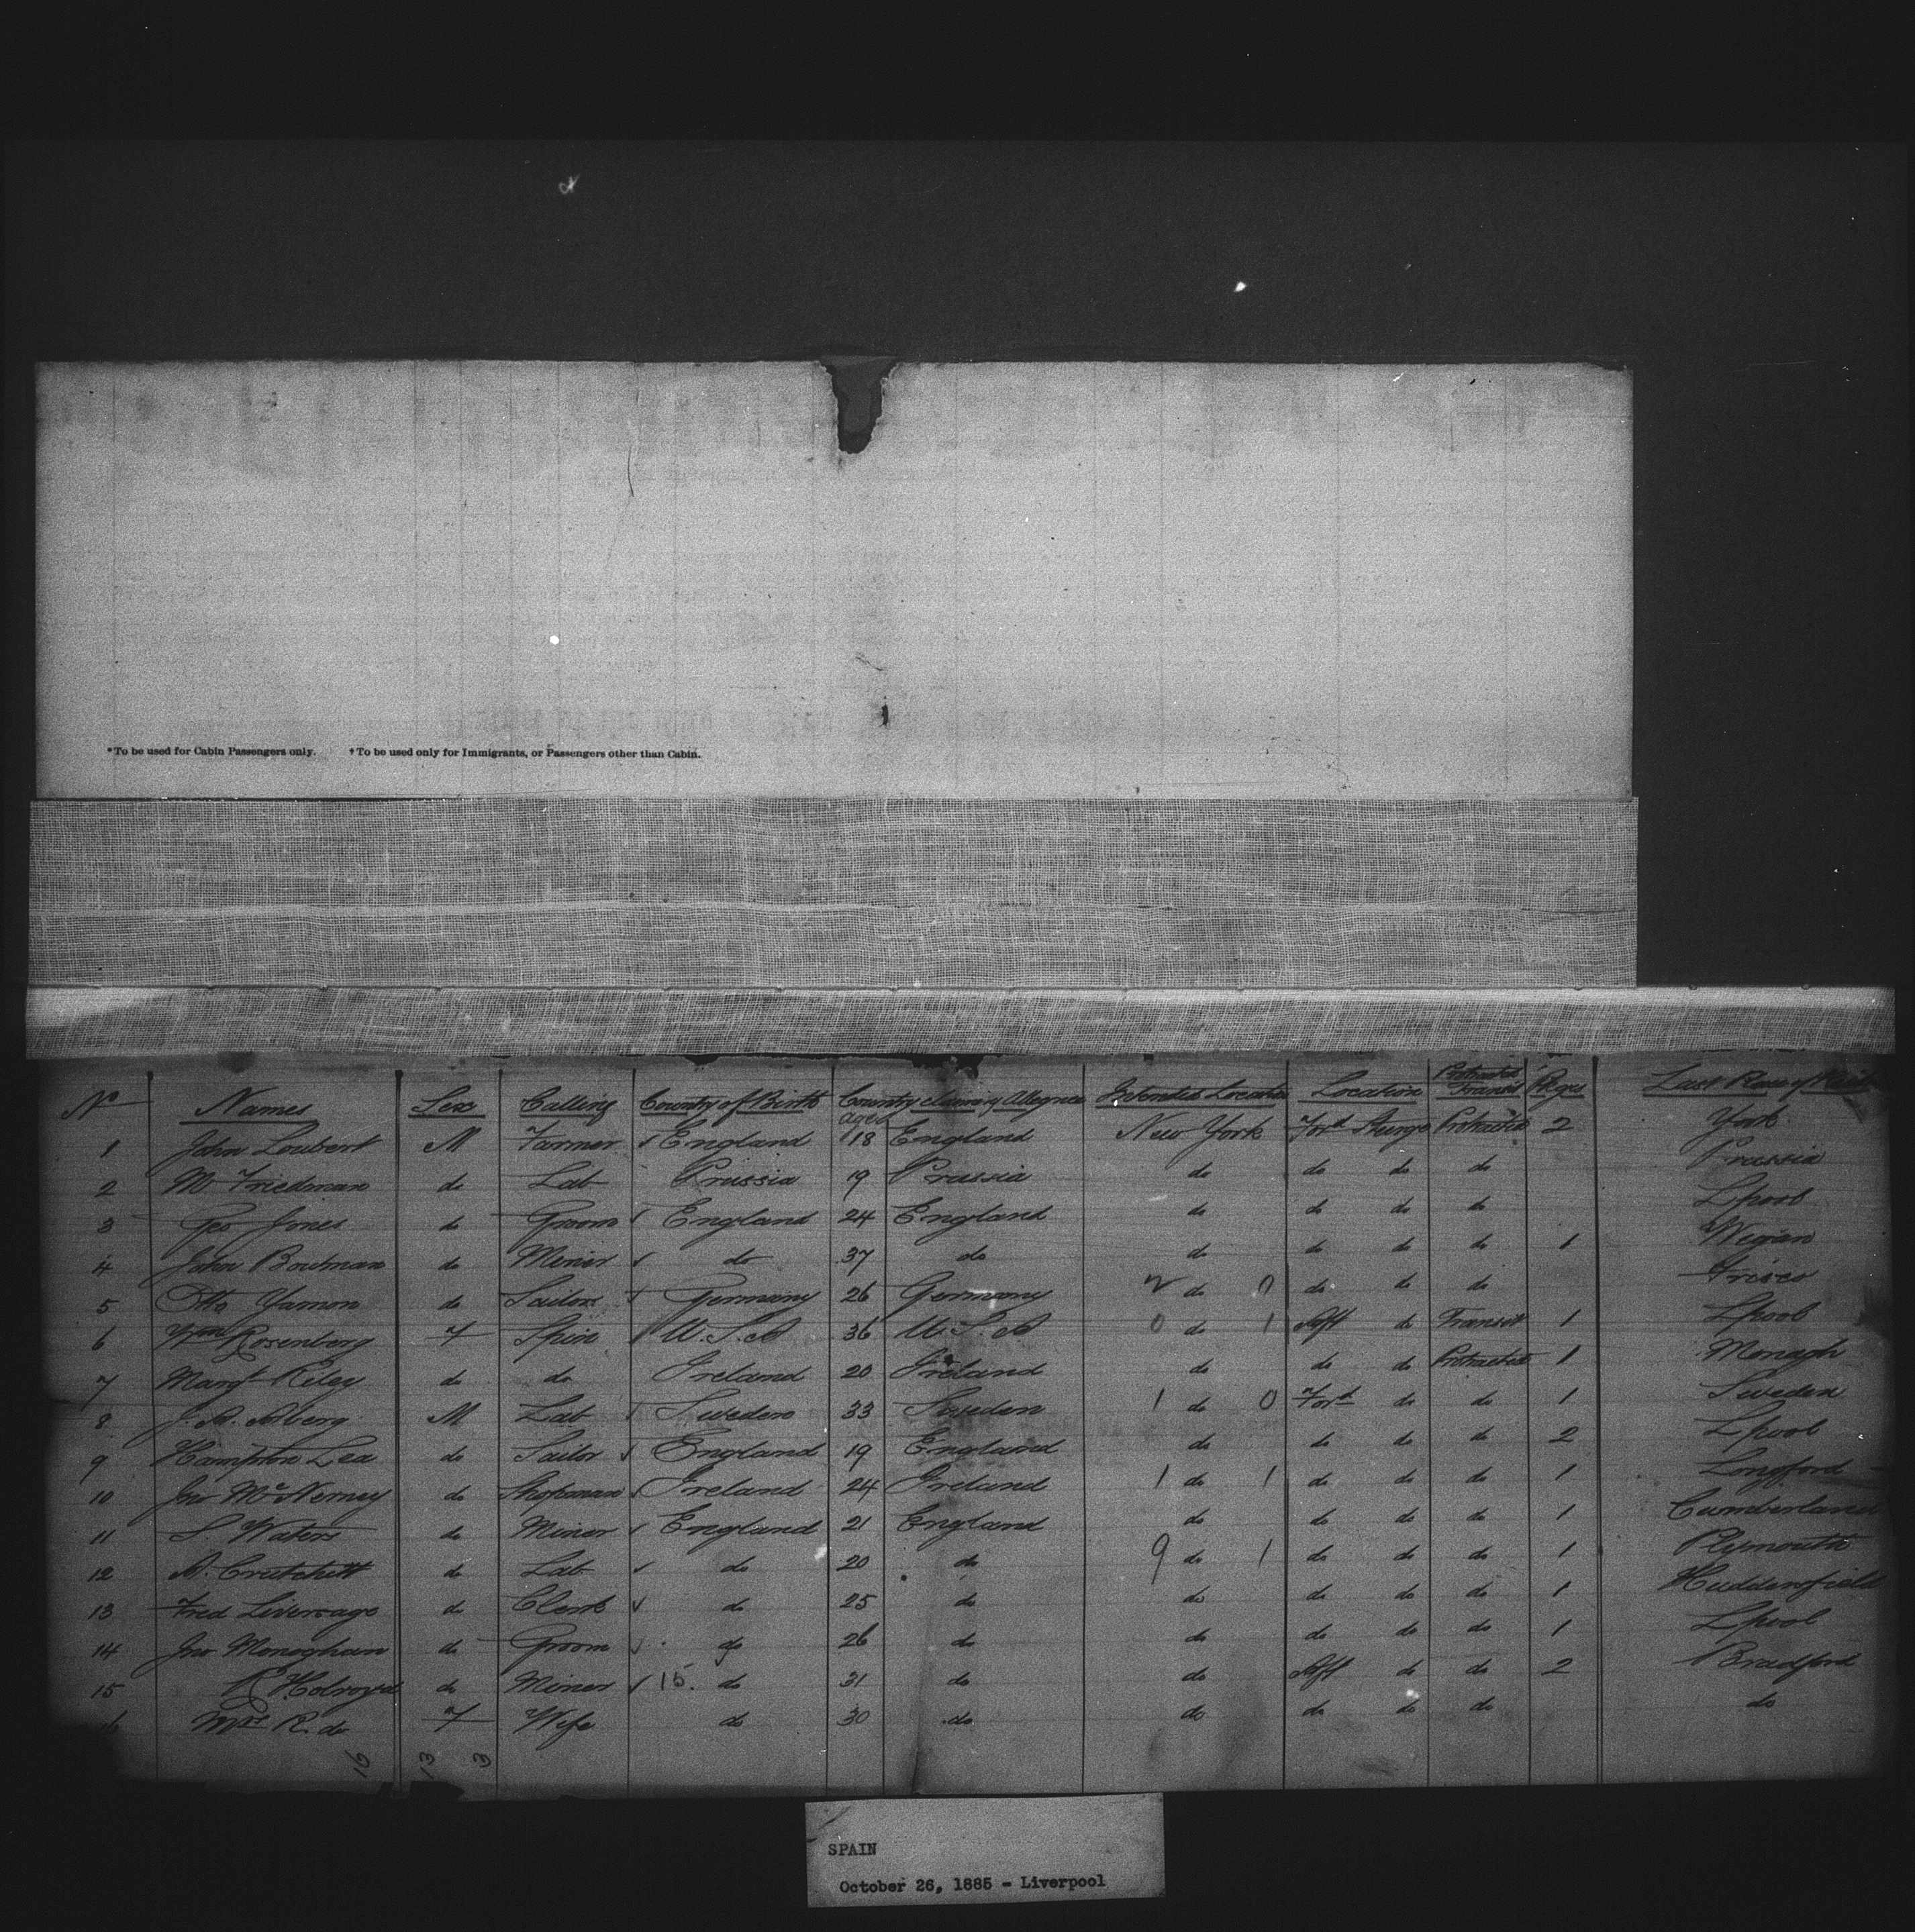 *To be used for Cabin Passengers only. †To be used only for Immigrants, or Passengers other than Cabin.
No Names Sex Calling Country of Birth Ages Country claiming Allegnce Intended Location Location Protracted Transit Pkges Last Place of
1 John Loubert M Farmer ✓ England 18 England New York Ford Steerge Protracted 2 York
2 M Friedman do Lab Prussia 19 Prussia do do do do Prussia
3 Geo Jones do Groom ✓ England 24 England do do do do Lpool
4 John Bowman do Miner ✓ do 37 do do do do do 1 Wigan
5 Otto Yamon do Sailor ✓ Germany 26 Germany do 0 do do do Frisco
6 Wm Rosenberg F Spin ✓ U.S.A 36 U.S.A 0 do 1 Aft do Transit 1 Lpool
7 Margt Riley do do Ireland 20 Ireland do do do Protracted 1 Monagh
8 J. A. Asberg M Lab ✓ Sweden 33 Sweden 1 do 0 Ford do do 1 Sweden
9 Hampton Lea do Sailor ✓ England 19 England do do do do 2 Lpool
10 Jno McNerney do Shopman ✓ Ireland 24 Ireland 1 do 1 do do do 1 Longford
11 S. Waters do Miner ✓ England 21 England do do do do 1 Cumberland
12 A. Crutchett do Lab ✓ do 20 do 9 do 1 do do do 1 Plymouth
13 Fred Liversage do Clerk ✓ do 25 do do do do do 1 Huddersfield
14 Jno Monoghan do Groom ✓ do 26 do do do do do 1 Lpool
15 R Holroyd do Miner ✓ 15. do 31 do do Aft do do 2 Bradford
16 Mrs R. do F Wife do 30 do do do do do do
16 13 3
SPAIN
October 26, 1885 - Liverpool